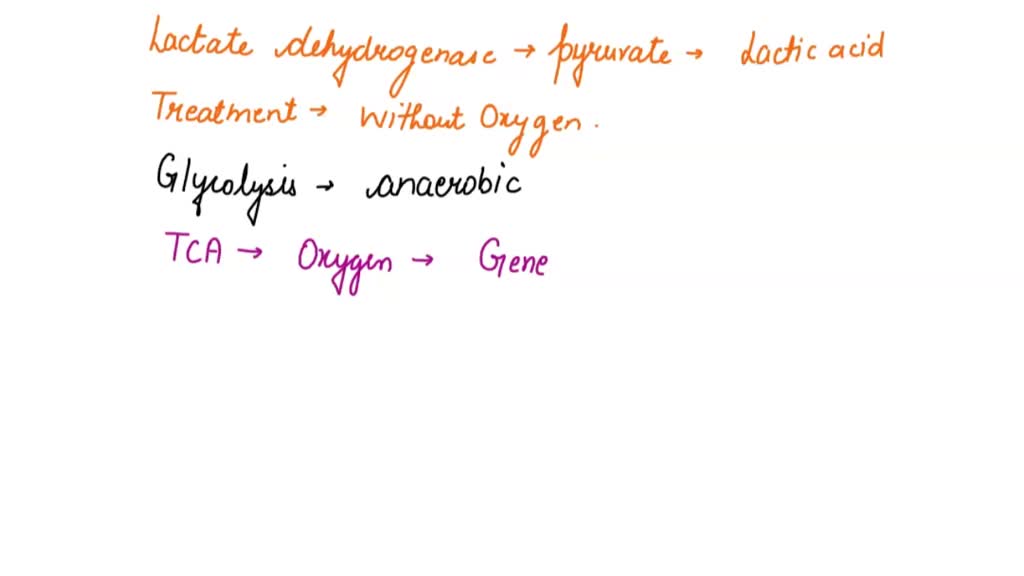 Lactate dehydrogenase → pyruvate → Lactic acid
Treatment → without Oxygen.
Glycolysis → anaerobic
TCA → Oxygen → Gene